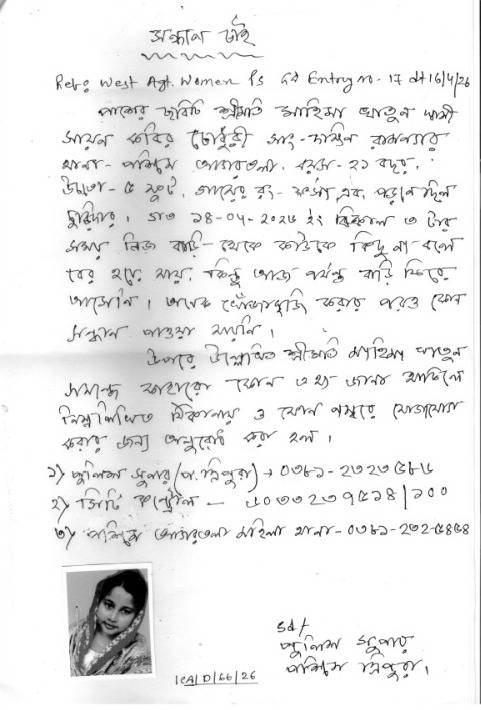 সন্ধান চাই
Ref:- West Agt. Women PS GD Entry no - 17 dt 16/4/26
পাশের ছবিটি শ্রীমতি মাহিমা খাতুন স্বামী
সায়ন কবির চৌধুরী সাং- দক্ষিন রামনগর
থানা- পশ্চিম আগরতলা, বয়স- ২১ বছর,
উচ্চতা- ৫ ফুট, গায়ের রং- ফর্সা এবং পড়নে ছিল
চুরিদার। গত ১৪-০৪-২০২৬ ইং বিকাল ৩ টার
সময় নিজ বাড়ি থেকে কাউকে কিছু না বলে
বের হয়ে যায়, কিন্তু আজ পর্যন্ত বাড়ি ফিরে
আসেনি। অনেক খোঁজাখুজি করার পরও কোন
সন্ধান পাওয়া যায়নি।
উপরে উল্লেখিত শ্রীমতি মাহিমা খাতুন
সম্বন্ধে কাহারো কোন তথ্য জানা থাকিলে
নিম্নলিখিত ঠিকানায় ও ফোন নম্বরে যোগাযোগ
করার জন্য অনুরোধ করা হল।
১) পুলিশ সুপার (প.ত্রিপুরা) → ০৩৮১-২৩২৩৫৮৬
২) সিটি কন্ট্রোল - ৮০৩৩২৩৭৫১৪/১০০
৩) পশ্চিম আগরতলা মহিলা থানা - ০৩৮১-২৩২-৫৪৫৪
sd/
পুলিশ সুপার
পশ্চিম ত্রিপুরা।
ICA/D/66/26